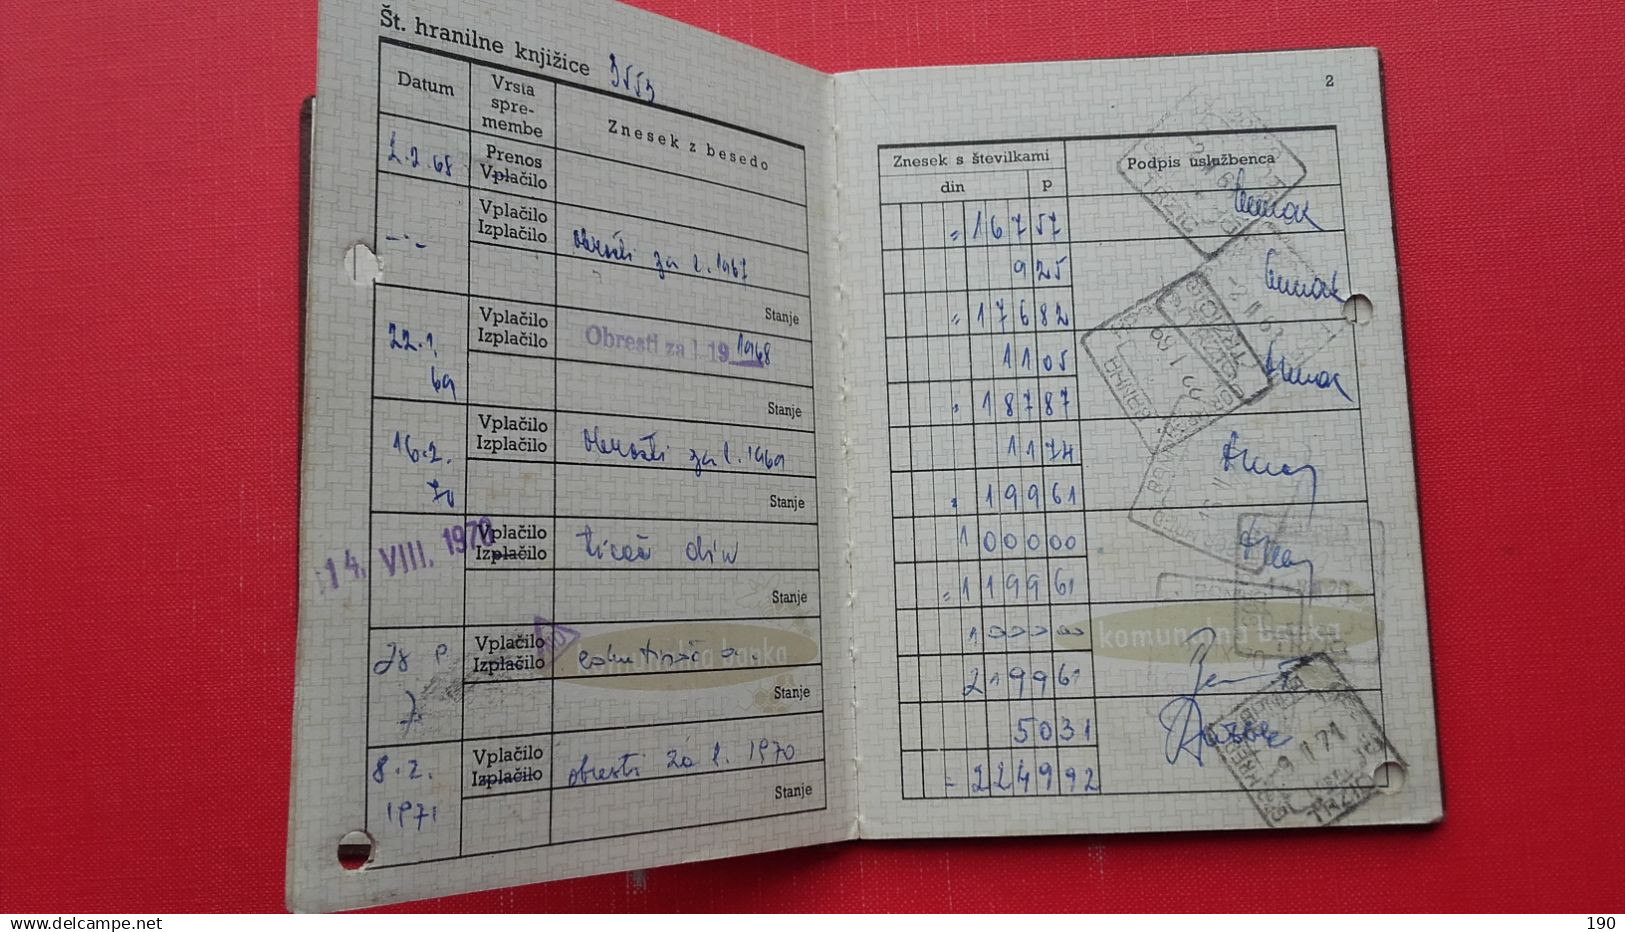 Št. hranilne knjižice
Datum
Vrsta spre-
membe
Znesek z besedo
2.2.68
Prenos
Vplačilo
Vplačilo
Izplačilo
obresti za l. 1967
Stanje
22.1.
69
Vplačilo
Izplačilo
Obresti za l. 19 1968
Stanje
16.2.
70
Vplačilo
Izplačilo
obresti za l. 1969
Stanje
14. VIII. 1970
Vplačilo
Izplačilo
tisoč din
Stanje
Vplačilo
Izplačilo
Stanje
8.2.
1971
Vplačilo
Izplačilo
obresti za l. 1970
Stanje
2
Znesek s številkami
Podpis uslužbenca
din p
= 167 57
9 25
= 176 82
11 05
187 87
11 74
199 61
1000 00
= 1199 61
1000 00
2199 61
50 31
= 2249 92
komunalna banka
TRŽIČ
190